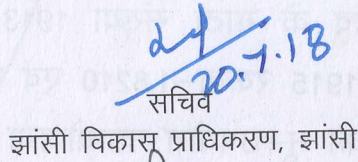 20.1.18
सचिव
झांसी विकास प्राधिकरण, झांसी